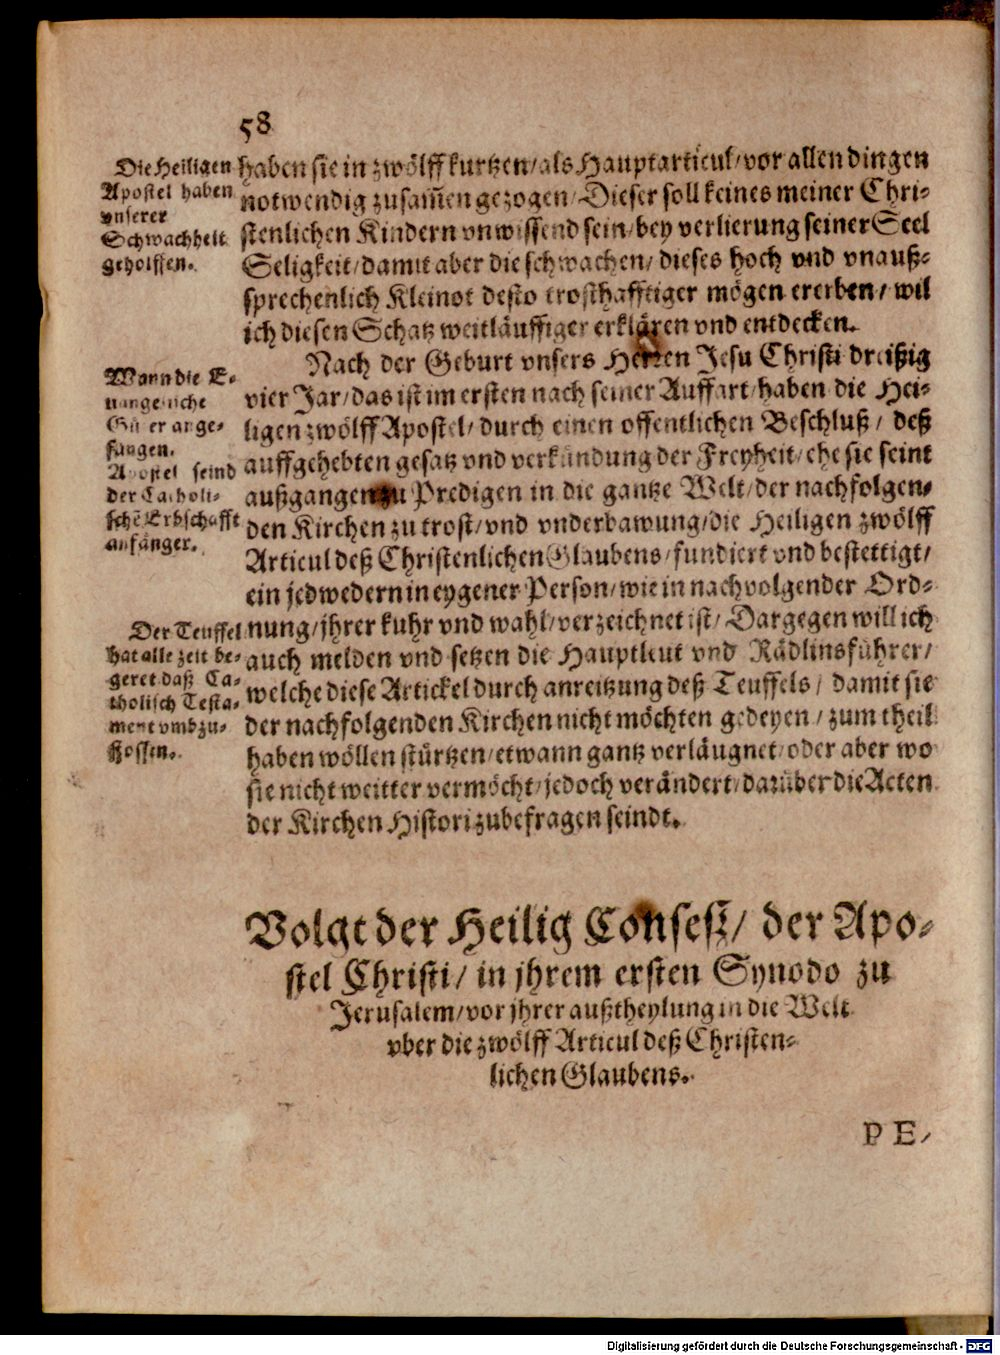 58
Die Heiligen
Apostel haben
vnserer
Schwachheit
geholffen.
haben sie in zwölff kurtzen/ als Hauptarticul/ vor allen dingen
notwendig zusam̃en gezogen/ Dieser soll keines meiner Chri-
stenlichen Kindern vnwissend sein/ bey verlierung seiner Seel
Seligkeit/ damit aber die schwachen/ dieses hoch vnd vnauß-
sprechenlich Kleinot desto trosthafftiger mögen ererben/ wil
ich diesen Schatz weitläuffiger erklären vnd entdecken.
Wann die E-
uangelische
Güter ange-
fangen.
Apostel seind
der Catholi-
schē Erbschafft
anfänger.
Nach der Geburt vnsers Herren Jesu Christi dreißig
vier Jar/ das ist im ersten nach seiner Auffart/ haben die Hei-
ligen zwölff Apostel/ durch einen offentlichen Beschluß/ deß
auffgehebten gesatz vnd verkündung der Freyheit/ ehe sie seint
außgangen zu Predigen in die gantze Welt/ der nachfolgen-
den Kirchen zu trost/ vnd vnderbawung/ die Heiligen zwölff
Articul deß Christenlichen Glaubens/ fundiert vnd bestettigt/
ein jedwedern in eygener Person/ wie in nachvolgender Ord-
nung/ jhrer kuhr vnd wahl/ verzeichnet ist/ Dargegen will ich
auch melden vnd setzen die Hauptleut vnd Rädlinsführer/
welche diese Artickel durch anreitzung deß Teuffels/ damit sie
der nachfolgenden Kirchen nicht möchten gedeyen/ zum theil
haben wöllen stürtzen/ etwann gantz verläugnet/ oder aber wo
sie nicht weitter vermöcht/ jedoch verändert/ darüber die Acten
der Kirchen Histori zubefragen seindt.
Der Teuffel
hat alle zeit be-
geret daß Ca-
tholisch Testa-
ment vmbzu-
stossen.
Volgt der Heilig Consesz/ der Apo-
stel Christi/ in jhrem ersten Synodo zu
Jerusalem/ vor jhrer außtheylung in die Welt
vber die zwölff Articul deß Christen-
lichen Glaubens.
PE-
Digitalisierung gefördert durch die Deutsche Forschungsgemeinschaft - DFG